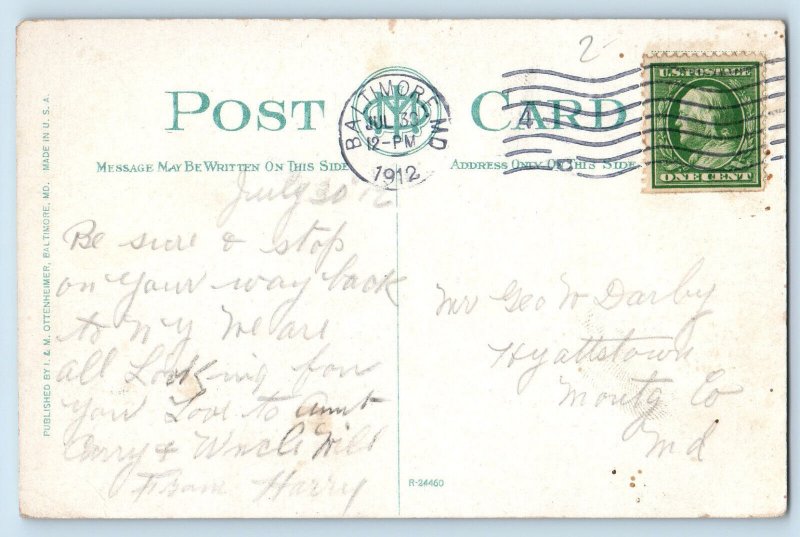 POST CARD
MESSAGE MAY BE WRITTEN ON THIS SIDE
ADDRESS ONLY ON THIS SIDE
BALTIMORE MD
JUL 30
12-PM
1912
4
2
U.S. POSTAGE
ONE CENT
July 30 12
Be sure & stop
on your way back
to N Y We are
all Looking for
you Love to Aunt
Carry & Uncle Will
From Harry
Mr Geo W Darby
Hyattstown
Montg Co
Md
R-24460
PUBLISHED BY I. & M. OTTENHEIMER, BALTIMORE, MD. MADE IN U.S.A.